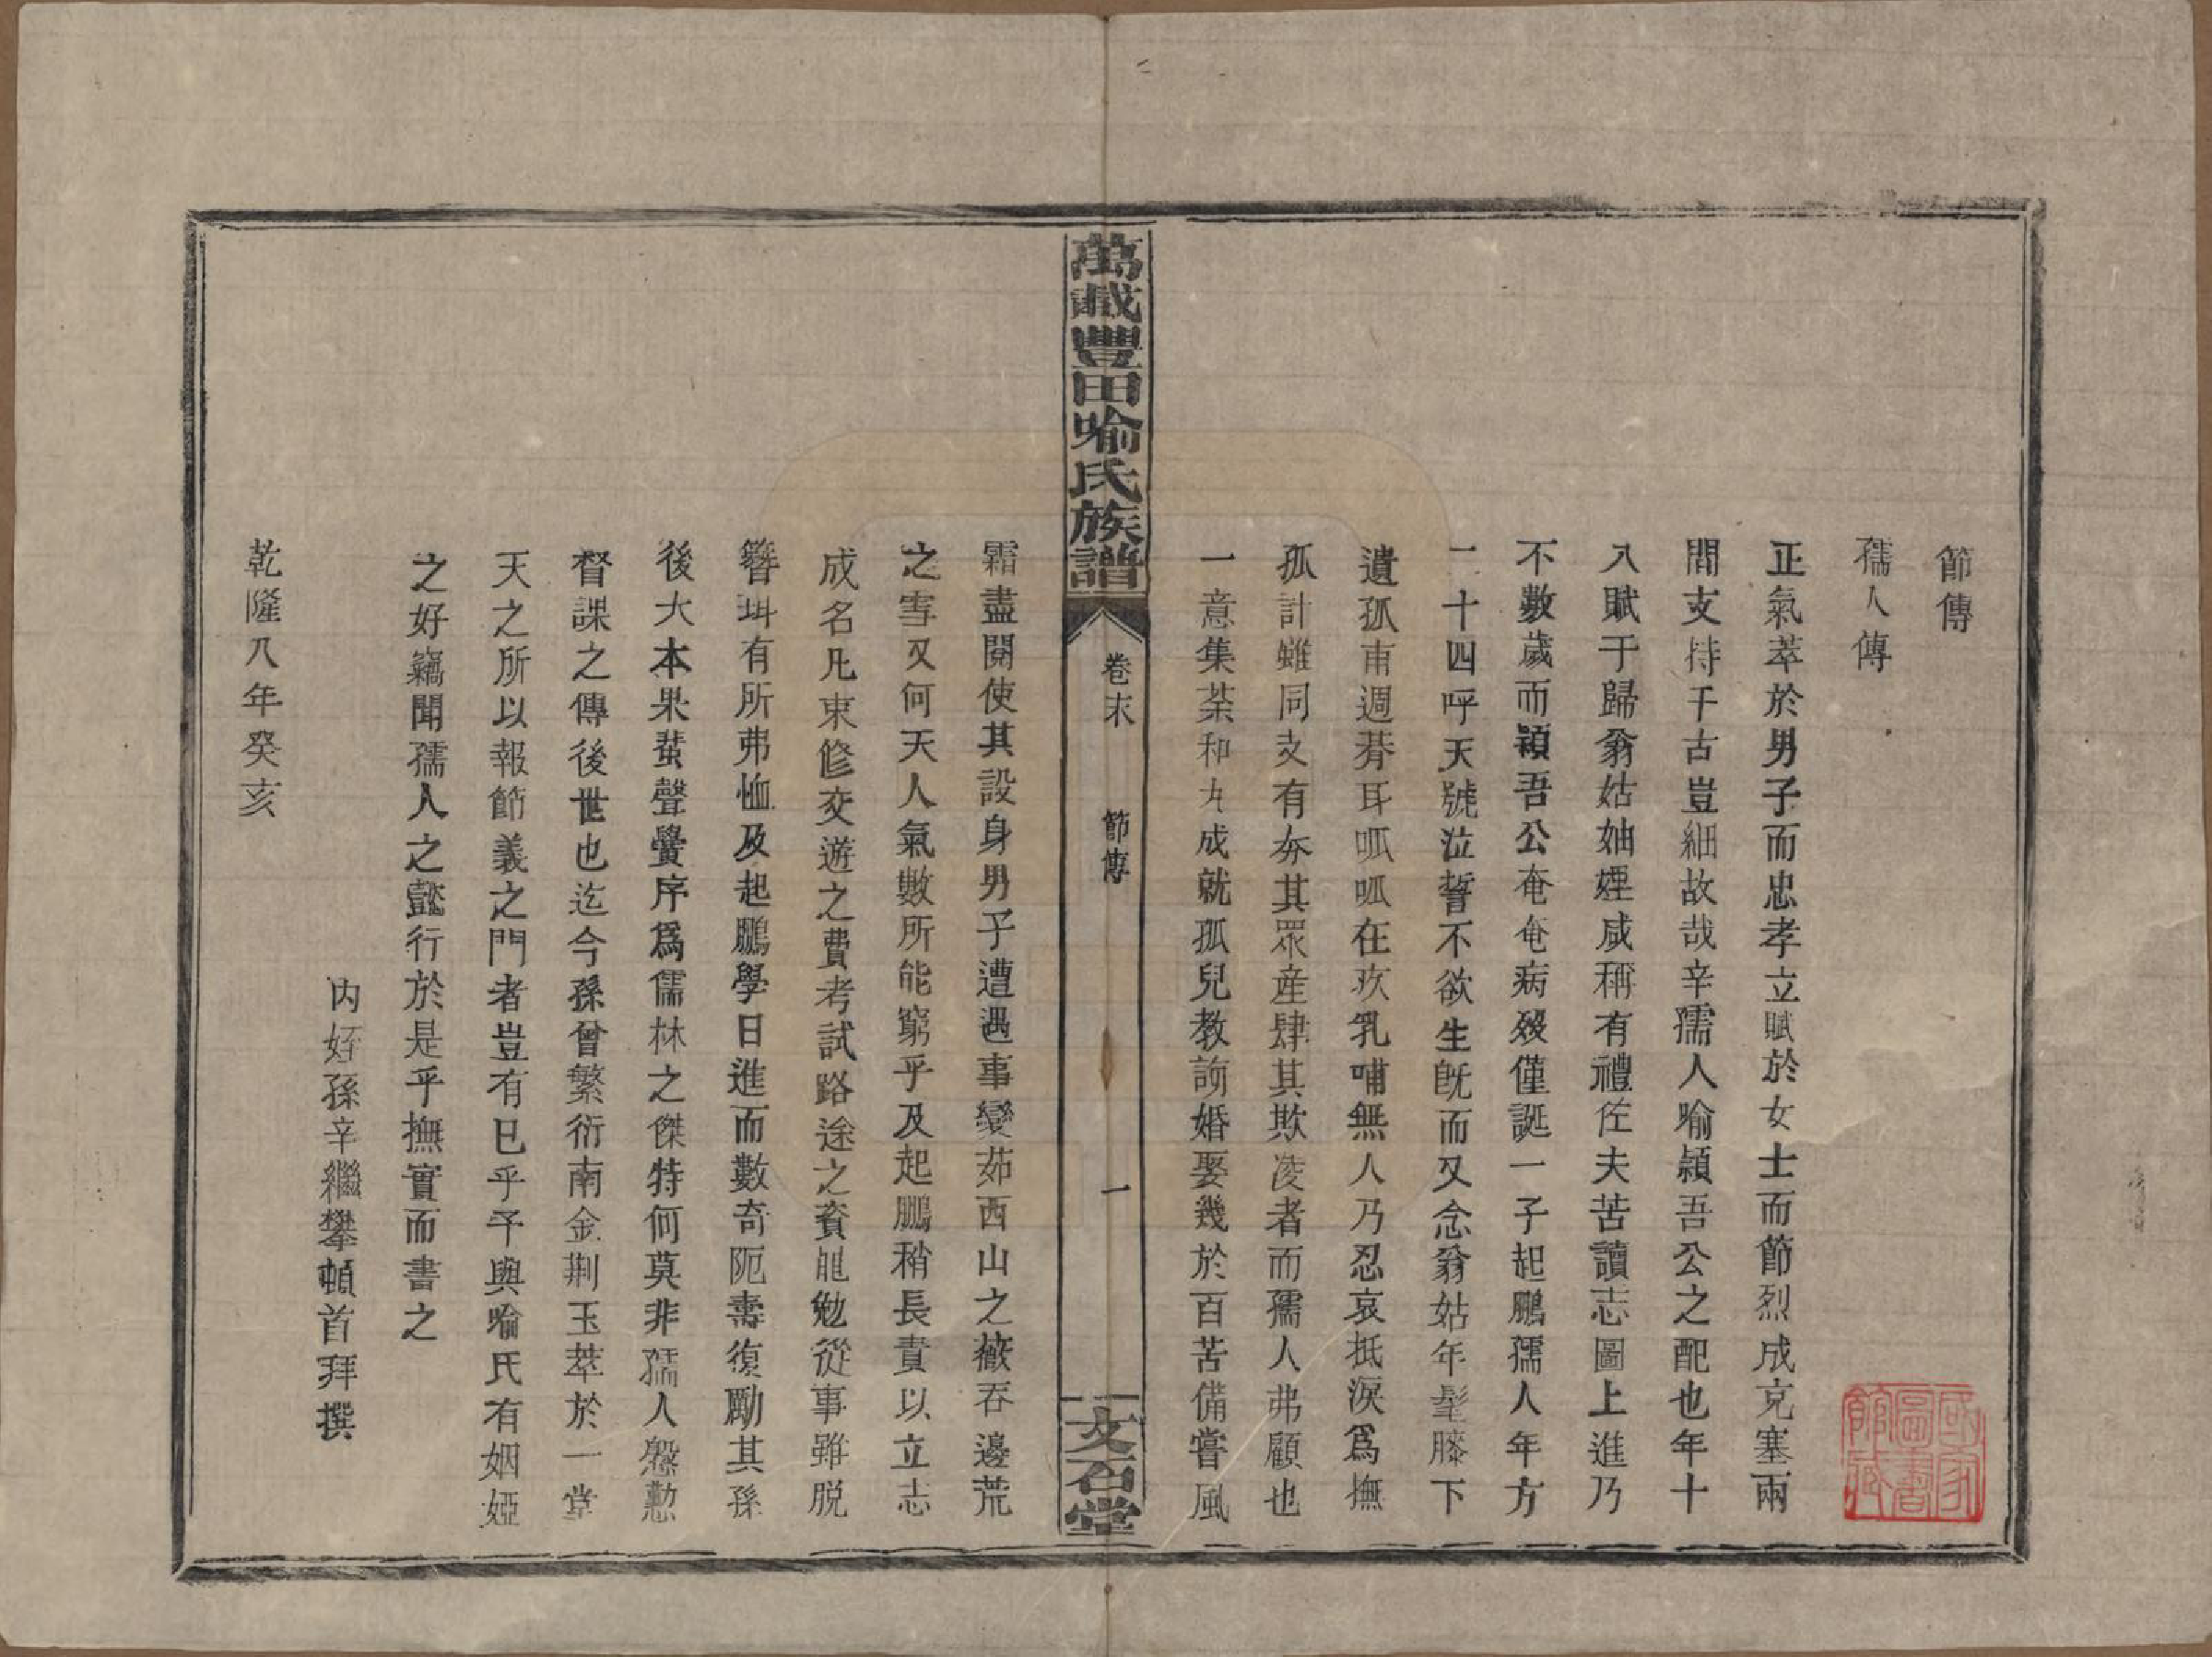 節傳
孺人傳
正氣萃於男子而忠孝立賦於女士而節烈成充塞兩
間支持千古豈細故哉辛孺人喻穎吾公之配也年十
八賦于歸翁姑妯娌咸稱有禮佐夫苦讀志圖上進乃
不數歲而穎吾公奄奄病歿僅誕一子起鵬孺人年方
二十四呼天號泣誓不欲生旣而又念翁姑年髦膝下
遺孤甫週朞耳呱呱在疚乳哺無人乃忍哀抵淚爲撫
孤計雖同支有夯其眾產肆其欺凌者而孺人弗顧也
一意集荼和丸成就孤兒教誨婚娶幾於百苦備嘗風
萬載豐田喻氏族譜
卷末
節傳
一
文石堂
霜盡閱使其設身男子遭遇事變茹西山之薇吞邊荒
之雪又何天人氣數所能窮乎及起鵬稍長責以立志
成名凡束修交遊之費考試路途之資黽勉從事雖脱
簪珥有所弗恤及起鵬學日進而數奇阨壽復勵其孫
後大本果蜚聲黌序爲儒林之傑特何莫非孺人慇懃
督課之傳後世也迄今孫曾繁衍南金荆玉萃於一堂
天之所以報節義之門者豈有已乎予與喻氏有姻婭
之好竊聞孺人之懿行於是乎撫實而書之
內姪孫辛繼攀頓首拜撰
乾隆八年癸亥
國家圖書館藏